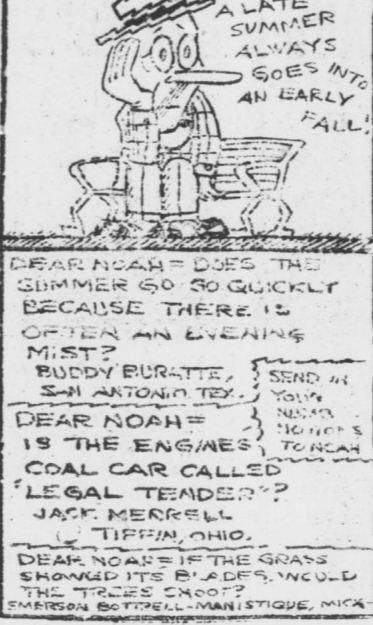 A LATE
SUMMER
ALWAYS
GOES INTO
AN EARLY
FALL!
DEAR NOAH= DOES THE
SUMMER GO SO QUICKLY
BECAUSE THERE IS
OFTEN AN EVENING
MIST?
BUDDY BURATTE,
SAN ANTONIO, TEX.
SEND IN
YOUR
NUMB
NOTIONS
TO NOAH
DEAR NOAH=
IS THE ENGINES
COAL CAR CALLED
"LEGAL TENDER"?
JACK MERRELL
TIFFIN, OHIO.
DEAR NOAH= IF THE GRASS
SHOWED ITS BLADES, WOULD
THE TREES SHOOT?
EMERSON BOTTRELL-MANISTIQUE, MICH